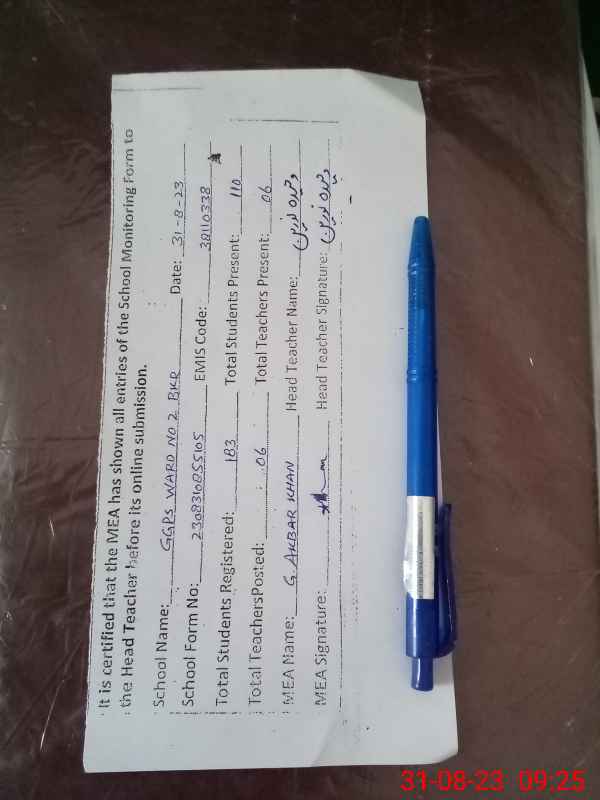 It is certified that the MEA has shown all entries of the School Monitoring Form to
the Head Teacher before its online submission.
School Name: GGPS WARD NO 2 BKR Date: 31-8-23
School Form No: 2308310855105 EMIS Code: 38110338
Total Students Registered: 183 Total Students Present: 110
Total TeachersPosted: 06 Total Teachers Present: 06
MEA Name: G. AKBAR KHAN Head Teacher Name: وحیدہ نورین
MEA Signature: Head Teacher Signature: وحیدہ نورین
31-08-23 09:25